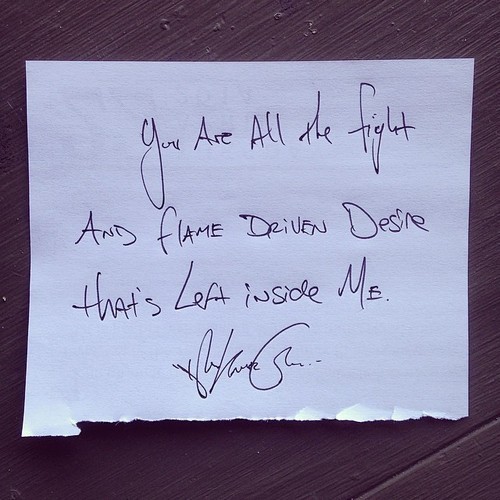 You Are All the fight
AND flAME DRIVEN Desire
that's Left inside Me.